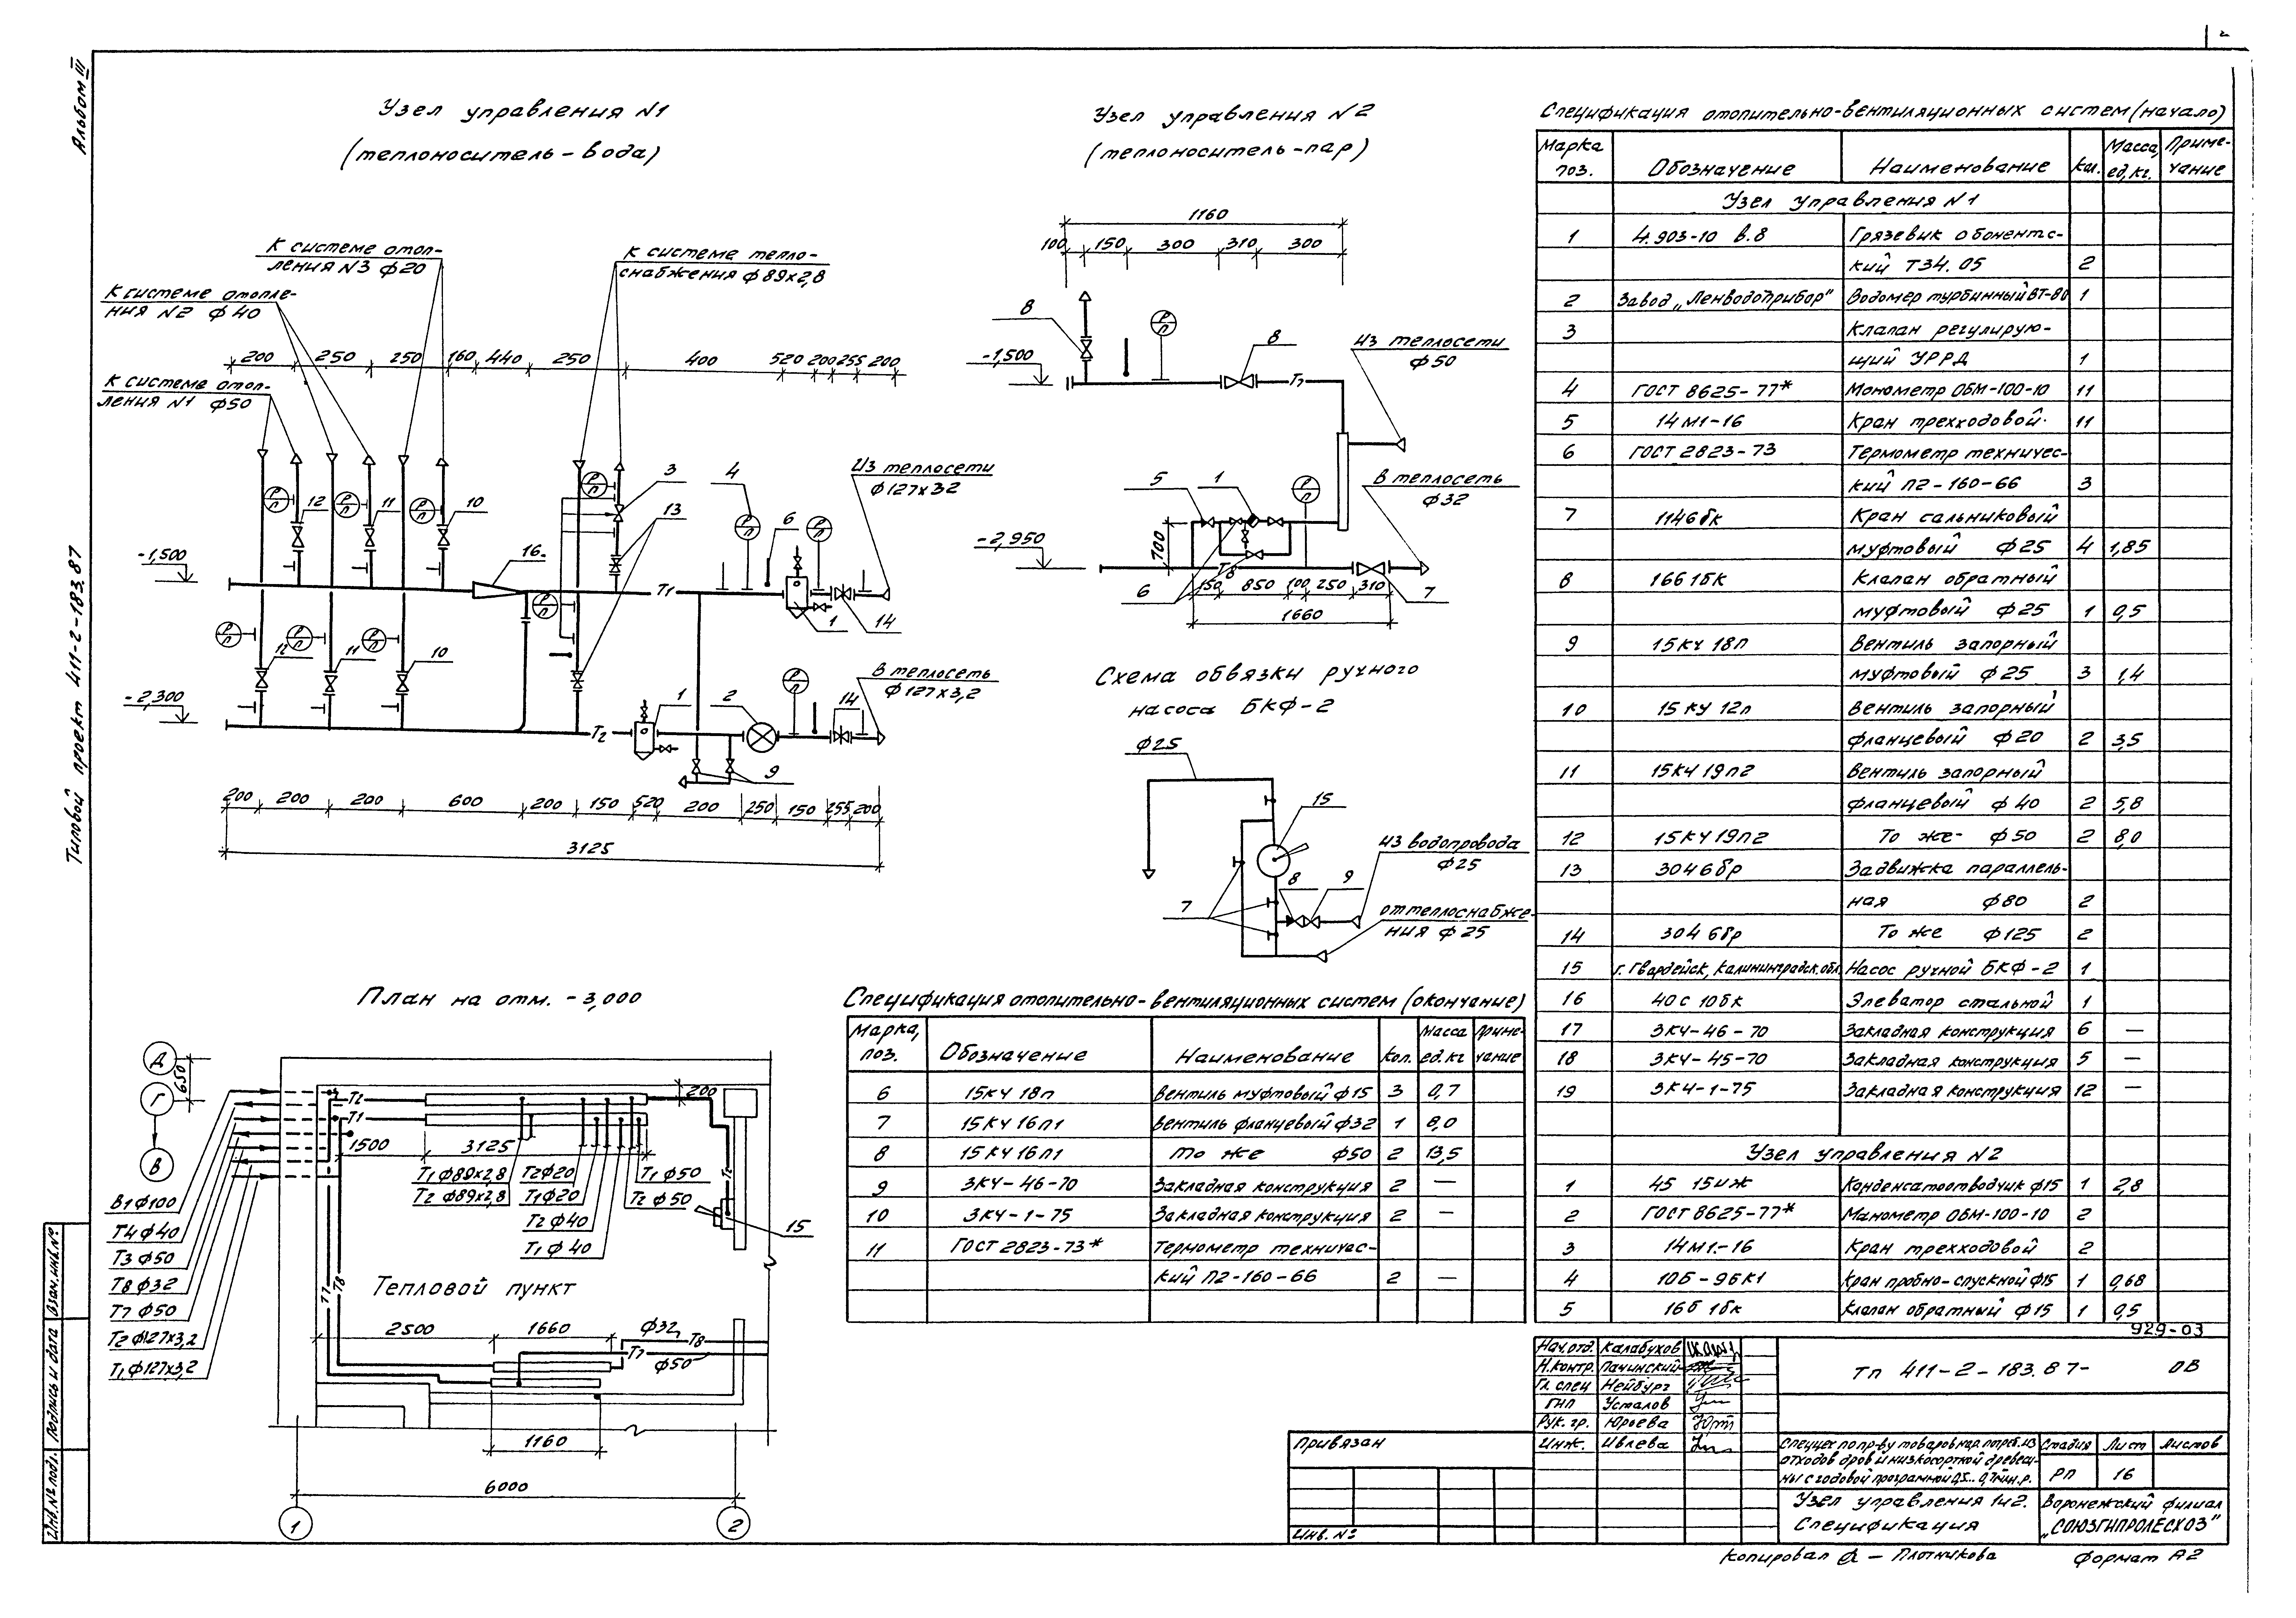 2
Альбом III
Типовой проект 411-2-183.87
Узел управления N1
(теплоноситель-вода)
К системе отоп-
ления N3 ф20
К системе тепло-
снабжения ф89х2,8
К системе отопле-
ния N2 ф40
200 250 250 160 440 250 400 520 200 255 200
К системе отоп-
ления N1 ф50
Из теплосети
ф127х32
3 4 6 12 11 10 13 16
-1,500
Т1
1 14
12 11 10
-2,300
Т2
1 2 14 9
В теплосеть
ф127х3,2
200 200 200 600 200 150 520 200 250 150 255 200
3125
Узел управления N2
(теплоноситель-пар)
1160
100 150 300 310 300
8 8
-1,500
Т7
Из теплосети
ф50
5 1
В теплосеть
ф32
700
-2,950
Т8
6 150 850 100 250 310 7
1660
Схема обвязки ручного
насоса БКФ-2
ф25
15
Из водопровода
ф25
8 9
7
от теплоснабже-
ния ф25
План на отм. -3,000
Д
Г
В
650
Т2
Т1
200
1500 3125
Т1ф89х2,8 Т2ф20 Т1ф50
Т2ф89х2,8 Т1ф20 Т2ф50
Т2ф40
Т1ф40
Т2
15
В1ф100
Т4ф40
Т3ф50
Т8ф32
Т7ф50
Т2ф127х3,2
Т1ф127х3,2
Т7 Т8
Тепловой пункт
2500 1660 ф32
Т8
Т7
ф50
1160
6000
1 2
Спецификация отопительно-вентиляционных систем (окончание)
Марка, поз. Обозначение Наименование Кол. Масса ед.кг Приме-чание
6 15кч 18п Вентиль муфтовый ф15 3 0,7
7 15кч 16п1 Вентиль фланцевый ф32 1 8,0
8 15кч 16п1 То же ф50 2 13,5
9 ЗКЧ-46-70 Закладная конструкция 2 —
10 ЗКЧ-1-75 Закладная конструкция 2 —
11 ГОСТ 2823-73* Термометр техничес-
кий П2-160-66 2 —
Спецификация отопительно-вентиляционных систем (начало)
Марка поз. Обозначение Наименование Кол. Масса, ед,кг. Приме-чание
Узел управления N1
1 4.903-10 в.8 Грязевик абонентс-
кий Т34.05 2
2 Завод „Ленводоприбор" Водомер турбинный ВТ-80 1
3 Клапан регулирую-
щий УРРД 1
4 ГОСТ 8625-77* Монометр ОБМ-100-10 11
5 14М1-16 Кран трехходовой 11
6 ГОСТ 2823-73 Термометр техничес-
кий П2-160-66 3
7 11ч6бк Кран сальниковый
муфтовый ф25 4 1,85
8 16б1бк Клапан обратный
муфтовый ф25 1 0,5
9 15кч 18п Вентиль запорный
муфтовый ф25 3 1,4
10 15кч 12п Вентиль запорный
фланцевый ф20 2 3,5
11 15кч 19п2 Вентиль запорный
фланцевый ф40 2 5,8
12 15кч 19п2 То же ф50 2 8,0
13 30ч6бр Задвижка параллель-
ная ф80 2
14 30ч6бр То же ф125 2
15 г. Гвардейск, Калининградск.обл. Насос ручной БКФ-2 1
16 40с 10бк Элеватор стальной 1
17 ЗКЧ-46-70 Закладная конструкция 6 —
18 ЗКЧ-45-70 Закладная конструкция 5 —
19 ЗКЧ-1-75 Закладная конструкция 12 —
Узел управления N2
1 45ч 15нж Конденсатоотводчик ф15 1 2,8
2 ГОСТ 8625-77* Манометр ОБМ-100-10 2
3 14М1-16 Кран трехходовой 2
4 10Б-9БК1 Кран пробно-спускной ф15 1 0,68
5 16б 1бк Клапан обратный ф15 1 0,5
929-03
Нач.отд. Калабухов
Н.контр. Пачинский
Гл. спец Нейбург
ГИП Усталов
Рук. гр. Юрьева
Инж. Ивлева
ТП 411-2-183.87- ОВ
Спеццех по пр-ву товаров нар. потреб. из
отходов дров и низкосортной древеси-
ны с годовой программой 0,5... 0,7 млн.р.
Стадия Лист Листов
РП 16
Узел управления 1и2.
Спецификация
Воронежский филиал
„СОЮЗГИПРОЛЕСХОЗ"
Привязан
Инв. №
Копировал — Плотникова
Формат А2
Взам.инв.№
Подпись и дата
Инв.№ подл.